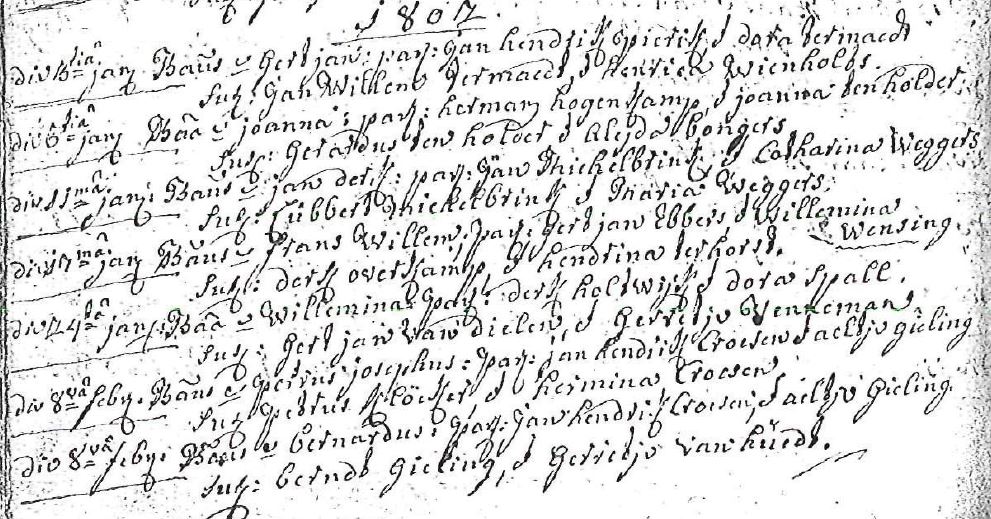 1802.
die 5tia janj Baūs e Gert jan: par: Gan hendrik spierik, & dora termaedt
susc: Gan Willem termaedt, & henrica Wienholds.
die 6tia janj Baa e joanna: par: hermanj hogenkamp, & joanna tenholder.
susc: Gerardus ten holder & Aleyda bongers
die 11ma janj: Baūs e jan derk: par: Gan Mickelbrink & Catharina Weggers,
susc: Lūbbert Mickelbrink & Maria Weggers.
die 17ma janj Baūs e frans Willem, par: Gert jan Ebbers, & Willemina Wensing.
susc: derk overkamp, & hendrina terhorst.
die 24ta janj: Baa e Willemina: par: derk holtwijk & dora spall.
susc: Gert jan van dielen, & Gerretjo Venneman
die 8va feby: Baūs e petrus josephus: par: jan hendrik Croesen & aeltjo gieling
susc: petrus Klöcker & hermina Croesen,
die 8va feby: Baūs e bernardus: par: Jan hendrik Croesen, & aeltjo Gieling.
susc: berndt Gieling, & Gerretjo van hūedt.